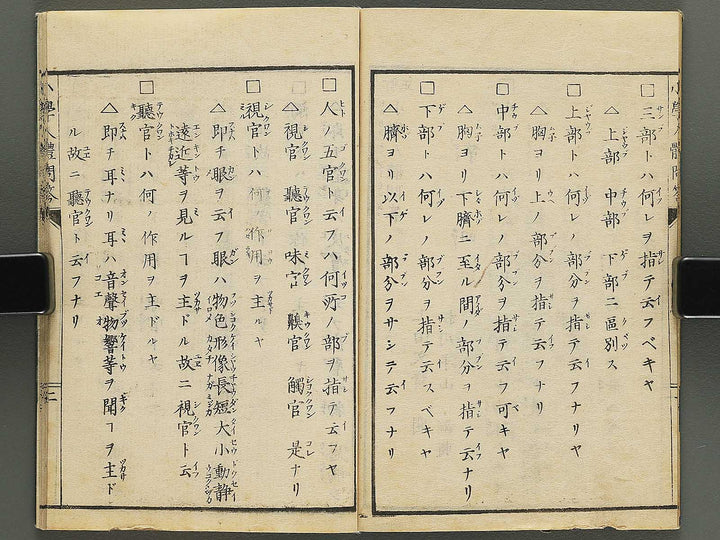 □三部トハ何レヲ指テ云フベキヤ
△上部 中部 下部ニ區別ス
□上部トハ何レノ部分ヲ指テ云フナリヤ
△胸ヨリ上ノ部分ヲ指テ云フナリ
□中部トハ何レノ部分ヲ指テ云フ可キヤ
△胸ヨリ下臍ニ至ル間ノ部分ヲ指テ云ナリ
□下部トハ何レノ部分ヲ指テ云スベキヤ
△臍ヨリ以下ノ部分ヲサシテ云フナリ
□人ノ五官ト云フハ何所ノ部ヲ指テ云フヤ
△視官 聽官 味官 齅官 觸官 是ナリ
□視官トハ何ノ作用ヲ主ルヤ
△即チ眼ヲ云フ眼ハ物色形像長短大小動靜
遠近等ヲ見ルヿヲ主ドル故ニ視官ト云
□聽官トハ何ノ作用ヲ主ドルヤ
△即チ耳ナリ耳ハ音聲物響等ヲ聞ヿヲ主ド
ル故ニ聽官ト云フナリ